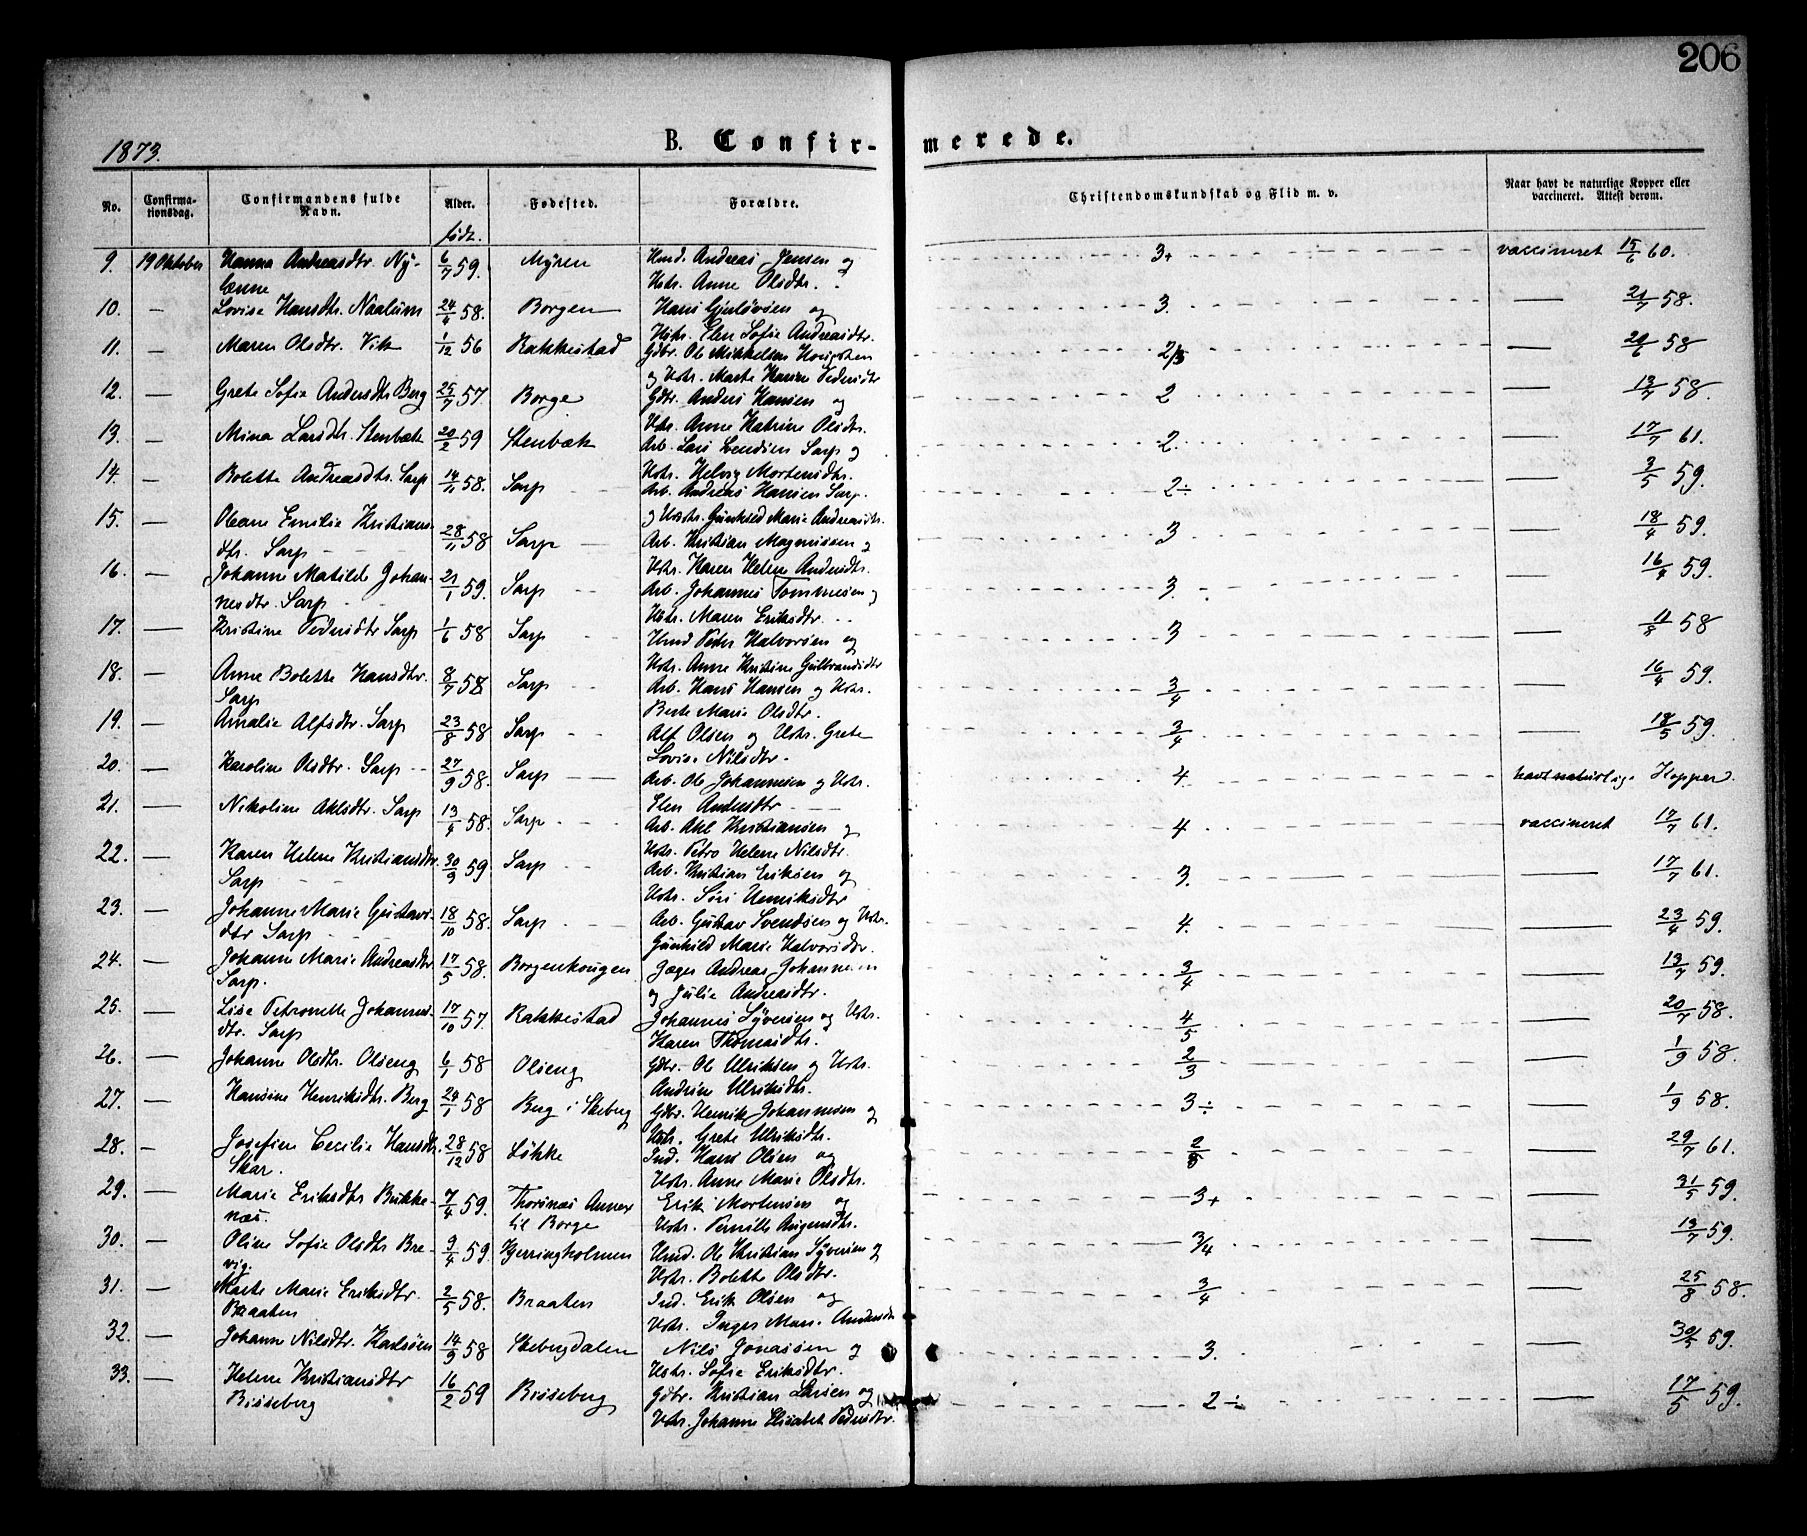 206
1873.
B. Confirmerede.
No.
Confirmationsdag.
Confirmandens fulde Navn.
Alder.
Fødested.
Forældre.
Christendomskundskab og Flid m. v.
Naar havt de naturlige Kopper eller vaccineret. Attest derom.
født.
9. 19 Oktober Hanna Andreasdtr. Ny- 6/7 59. Myren Hmd. Andreas Jensen og 3+ vaccineret 15/6 60.
lænne Hstr. Anne Olsdtr.
10. — Lovise Hansdtr. Naalum 24/4 58. Borgen Hans Gjulövsen og 3. — 21/7 58.
Hstr. Elen Sofie Andreasdtr.
11. — Maren Olsdtr. Vik 1/12 56 Rakkestad Gdbr. Ole Mikkelsen 2/3 — 20/6 58
og Hstr. Marte Karine Pedersdtr
12. — Grete Sofie Andersdtr Berg 25/7 57. Borge Gdbr. Anders Hansen og 2 — 13/7 58.
Hstr. Anne Katrine Olsdtr.
13. — Mina Larsdtr. Stenbæk 20/2 59 Stenbæk Arb. Lars Svendsen Sarp og 2. — 17/7 61.
Hstr. Helvig Mortensdtr.
14. — Bolette Andreasdtr. Sarp 14/11 58. Sarp Arb. Andreas Hansen Sarp. 2÷ — 3/5 59.
og Hstr. Gunhild Marie Andreasdtr.
15. — Oleane Emilie Kristians- 28/11 58 Sarp Arb. Kristian Magnussen og 3 — 18/4 59.
dtr. Sarp Hstr. Karen Helene Andersdtr.
16. — Johanne Matilde Johan- 21/1 59. Sarp Arb. Johannes Tommesen og 3. — 16/4 59.
nesdtr. Sarp Hstr. Maren Eriksdtr.
17. — Kristine Pedersdtr Sarp 1/6 58 Sarp Hmd Peter Halvorsen og 3 — 11/8 58
Hstr. Anne Kristine Gulbrandsdtr
18. — Anne Bolette Hansdtr. 8/7 58 Sarp Arb. Hans Hansen og Hstr. 3/4 — 16/4 59.
Sarp Berte Marie Olsdtr.
19. — Amalie Alfsdtr. Sarp 23/8 58 Sarp Alf Olsen og Hstr. Grete 3/4 — 18/5 59.
Lovise Nilsdtr.
20. — Karoline Olsdtr. Sarp 27/9 58. Sarp Arb. Ole Johannesen og Hstr. 4 havt naturlige Kopper.
Elen Andersdtr
21. — Nikoline Akselsdtr. Sarp 13/4 58. Sarp Arb. Aksel Kristiansen og 4 vaccineret 17/7 61.
Hstr. Petro Helene Nilsdtr.
22. — Karen Helene Kristiansdtr. 30/9 59 Sarp Arb. Kristian Eriksen og 3. — 17/7 61.
Sarp Hstr. Siri Henriksdtr
23. — Johanne Marie Gustavs- 18/10 58. Sarp Arb. Gustav Svendsen og Hstr. 4. — 23/4 59.
dtr Sarp Gunhild Marie Halvorsdtr.
24. — Johanne Marie Andreasdtr 17/5 58. Borgenhougen Jæger Andreas Johannesen 3/4 — 13/7 59.
Sarp. og Julie Andreasdtr.
25. — Lise Petronelle Johannes- 17/10 57. Rakkestad Johannes Syversen og Hstr. 4/5 — 20/7 58.
dtr. Sarp Karen Thomasdtr.
26. — Johanne Olsdtr. Olseng 6/1 58 Olseng Gdbr. Ole Ulriksen og Hstr. 2/3 — 1/9 58.
Andrine Ulriksdtr.
27. — Hansine Henriksdtr. Berg 24/1 58 Berg i Skeberg Gdbr. Henrik Johannesen og 3÷ — 1/9 58.
Hstr. Grete Ulriksdtr.
28. — Josefine Cecilie Hansdtr. 28/12 58 Løkke Ind. Hans Olsen og 2/3 — 29/7 61.
Skar. Hstr. Anne Marie Olsdtr.
29. — Marie Eriksdtr Bukke- 7/4 59. Thorsnæs Annex Erik Mortensen og 3+ — 31/5 59.
næs. til Borge Hstr. Pernille Augensdtr.
30. — Oline Sofie Olsdtr Bre- 9/4 59. Kjerringholmen Hmd. Ole Kristian Syversen og 3/4 — 13/7 59.
vig. Hstr. Bolette Olsdtr.
31. — Marte Marie Eriksdtr. 2/5 58. Braaten Ind. Erik Olsen og 3/4 — 25/8 58.
Braaten Hstr. Inger Marie Andersdtr
32. — Johanne Nilsdtr. Karlsøen 14/9 58 Skebergdalen Nils Jonassen og 3. — 30/5 59.
Hstr. Sofie Eriksdtr.
33. — Helene Kristiansdtr 16/2 59 Bisseberg Gdbr. Kristian Larsen og 2÷ — 17/5 59.
Bisseberg Hstr. Johanne Elisabet Pedersdtr.